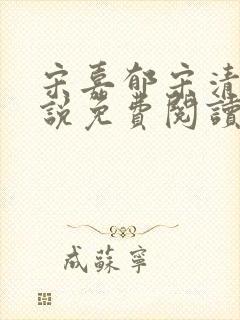 宋嘉郁宋清
說免費閱讀
成蘇寧